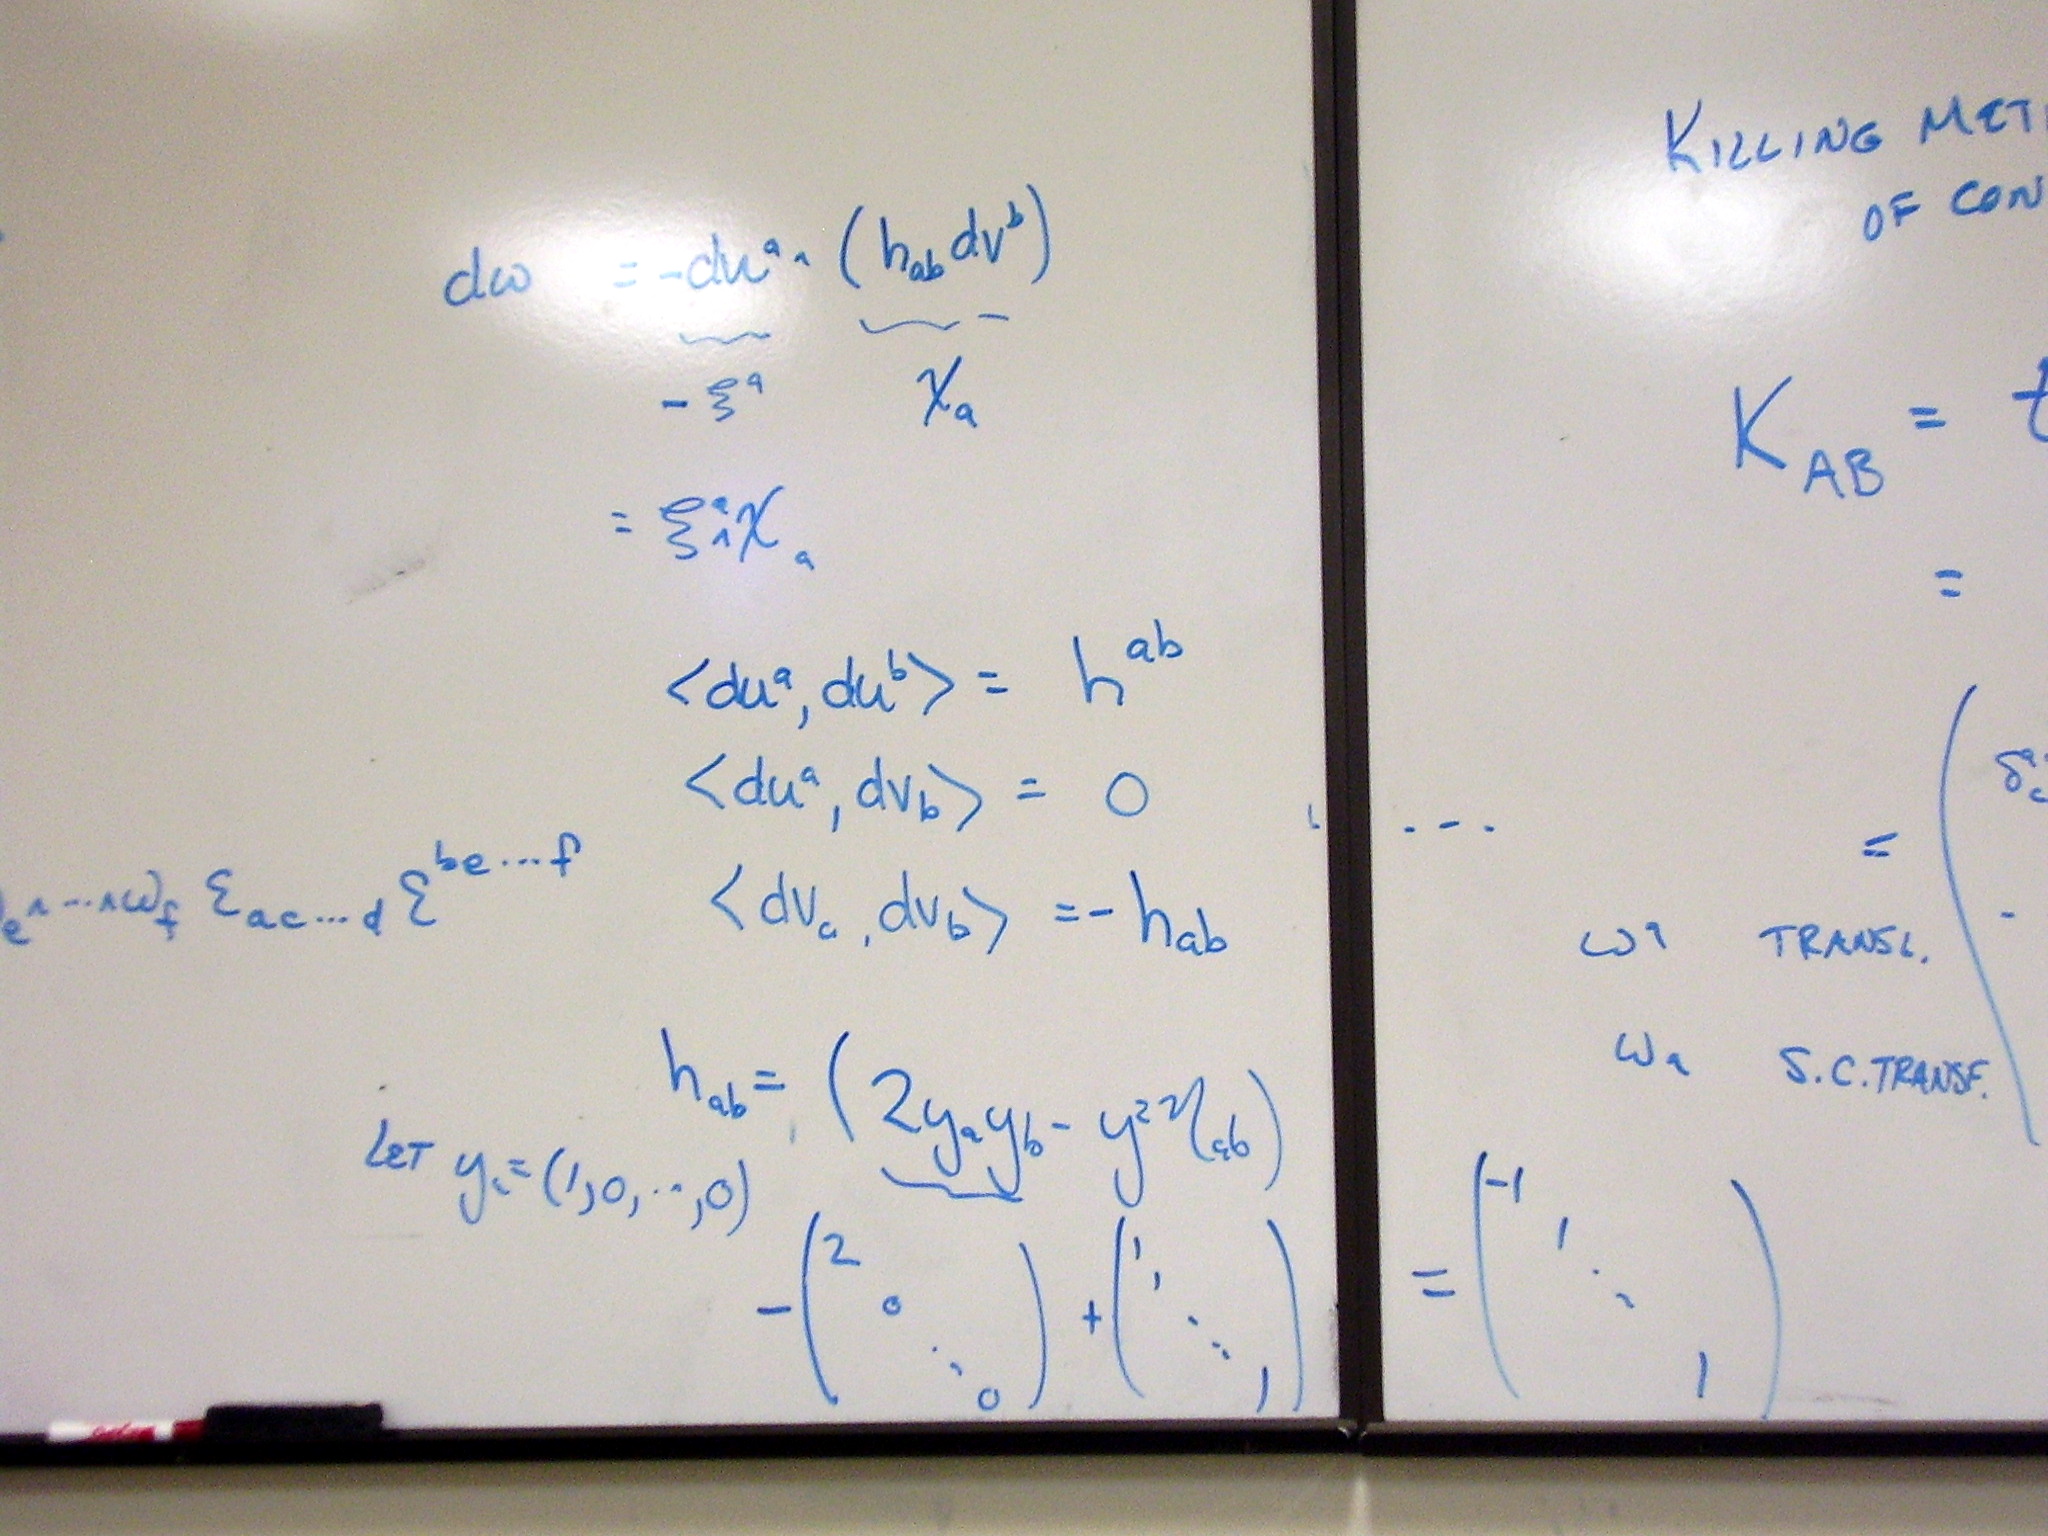 dω = -du^a ∧ (h_ab dv^b)
-ξ^a χ_a
= ξ^a ∧ χ_a
<du^a, du^b> = h^ab
<du^a, dv_b> = 0
<dv_a, dv_b> = -h_ab
e ∧ ... ∧ ω_f ε_ac...d ε^be...f
h_ab = (2y_a y_b - y^2 η_ab)
LET y_a = (1,0,...,0)
-(2 0 ⋱ 0) + (1 1 ⋱ 1) = (-1 1 ⋱ 1)
KILLING MET
OF CON
K_AB = t
=
= ( δ^a_c
-
ω^a TRANSL.
ω_a S.C.TRANSF.